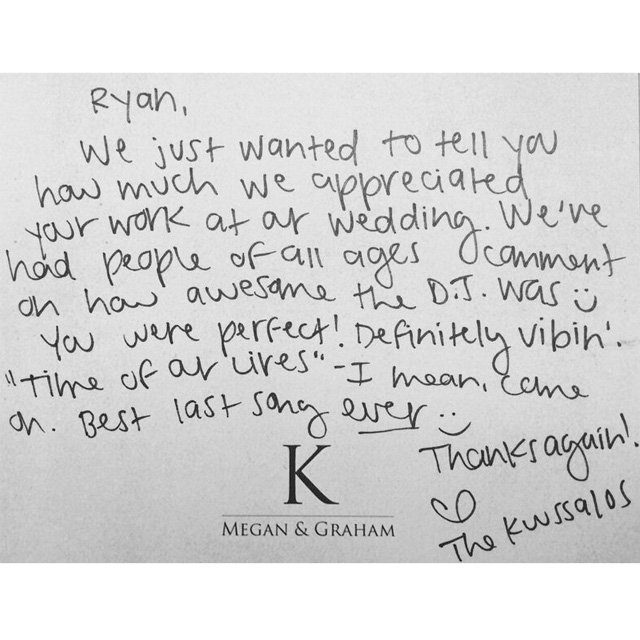 Ryan,
We just wanted to tell you
how much we appreciated
your work at our wedding. We've
had people of all ages comment
on how awesome the D.J. was :)
You were perfect! Definitely vibin'.
"Time of our lives" - I mean, come
on. Best last song ever :)
Thanks again!
♡
The
K
MEGAN & GRAHAM